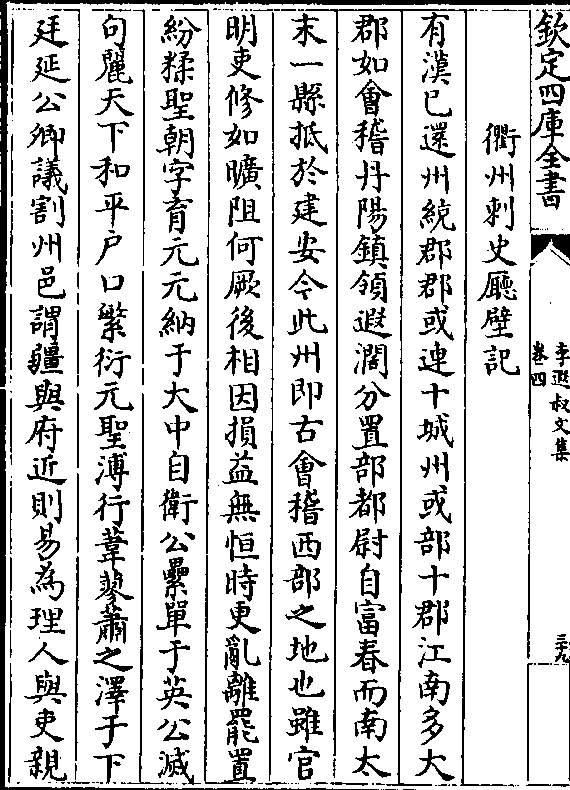 欽定四庫全書
李遐叔文集
卷四
三九
衢州刺史廳壁記
有漢已還州統郡郡或連十城州或部十郡江南多大
郡如會稽丹陽鎮領遐濶分置部都尉自富春而南太
末一縣抵於建安今此州即古會稽西部之地也雖官
明吏修如曠阻何厥後相因損益無恒時更亂離罷置
紛糅聖朝字育元元納于大中自衛公纍單于英公滅
句麗天下和平戶口繁衍元聖溥行葦蓼蕭之澤于下
廷延公卿議割州邑謂疆與府近則易為理人與吏親